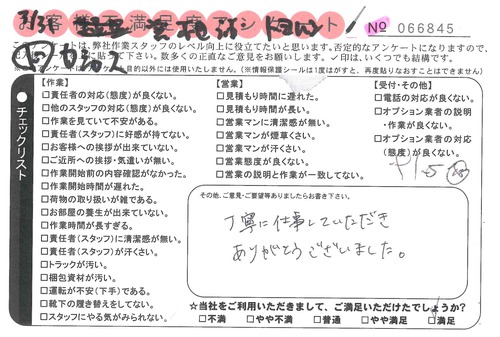 お客様不満足度アンケート
No 066845
このアンケートは、弊社作業スタッフのレベル向上に役立てたいと思います。否定的なアンケートになりますので、
に貼って下さい。数多くの正直なご意見をお願いします。✓印は、いくつでも結構です。
アンケート目的以外には使用いたしません。(※情報保護シールは1度はがすと、再度貼りなおすことはできません)
チェックリスト
【作業】
□責任者の対応(態度)が良くない。
□他のスタッフの対応(態度)が良くない。
□作業を見ていて不安がある。
□責任者(スタッフ)に好感が持てない。
□お客様への挨拶が出来ていない。
□ご近所への挨拶・気遣いが無い。
□作業開始前の内容確認がなかった。
□作業開始時間が遅れた。
□荷物の取り扱いが雑である。
□お部屋の養生が出来ていない。
□作業時間が長すぎる。
□責任者(スタッフ)に清潔感が無い。
□責任者(スタッフ)が汗くさい。
□トラックが汚い。
□梱包資材が汚い。
□運転が不安(下手)である。
□靴下の履き替えをしてない。
□スタッフにやる気がみられない。
【営業】
□見積もり時間に遅れた。
□見積もり時間が長い。
□営業マンに清潔感が無い。
□営業マンが煙草くさい。
□営業マンが汗くさい。
□営業態度が良くない。
□営業の説明と作業が一致してない。
【受付・その他】
□電話の対応が良くない。
□オプション業者の説明
・作業が良くない。
□オプション業者の対応
(態度)が良くない。
その他、ご意見・ご要望等ありましたらお書き下さい。
丁寧に仕事していただき
ありがとうございました。
☆当社をご利用いただきまして、ご満足いただけたでしょうか?
□不満 □やや不満 □普通 □やや満足 □満足